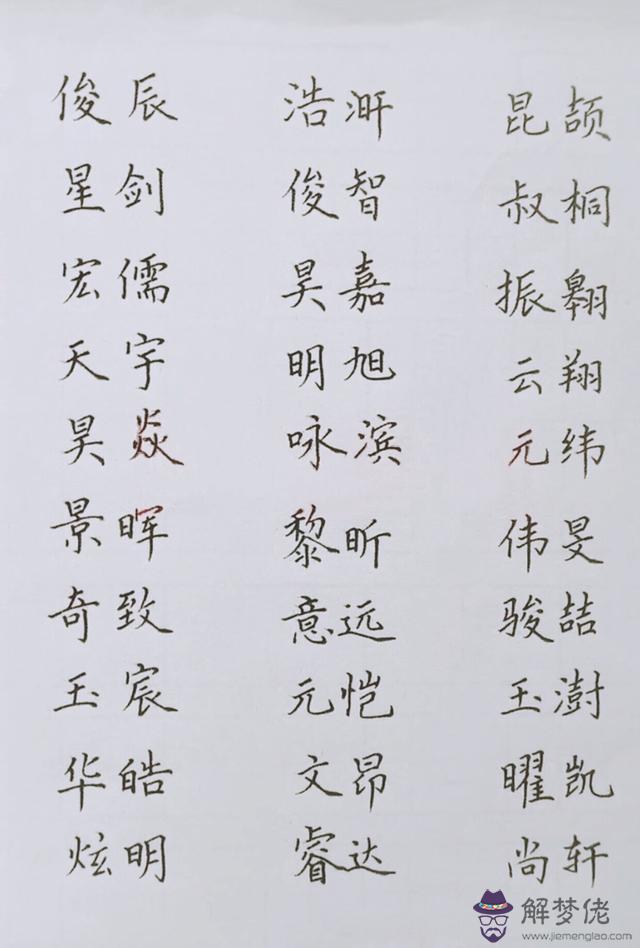 俊辰 浩洴 昆颉
星剑 俊智 叔桐
宏儒 昊嘉 振翱
天宇 明旭 云翔
昊焱 咏滨 元纬
景晖 黎昕 伟旻
奇致 意远 骏喆
玉宸 元恺 玉澍
华皓 文昂 曜凯
炫明 睿达 尚轩
解梦佬
www.jiemenglao.com